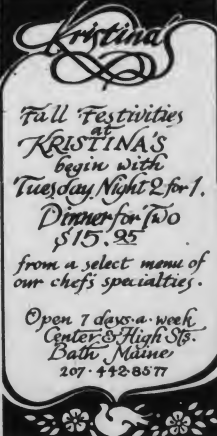 Kristina's
Fall Festivities
at
KRISTINA'S
begin with
Tuesday Night 2 for 1.
Dinner for Two
$15.95
from a select menu of
our chefs specialties.
Open 7 days·a·week
Center & High Sts.
Bath, Maine
207·442·8577